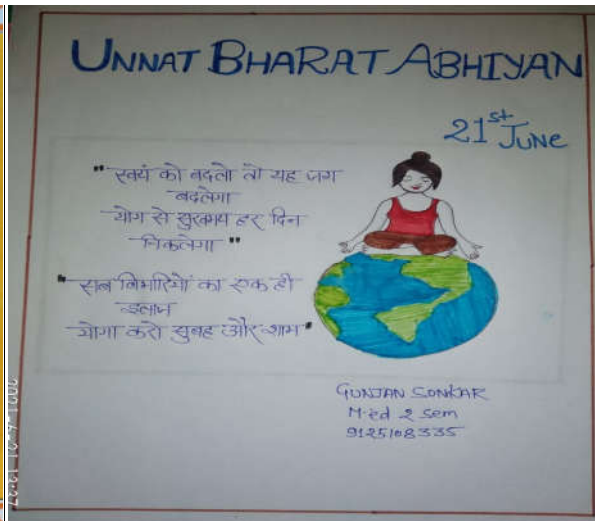 UNNAT BHARAT ABHIYAN
21st JUNE
"स्वयं को बदलो तो यह जग
बदलेगा
योग से सुखमय हर दिन
निकलेगा"
"सब बिमारियों का एक ही
इलाज
योगा करो सुबह और शाम"
GUNJAN SONKAR
M.ed 2 Sem
9125108335